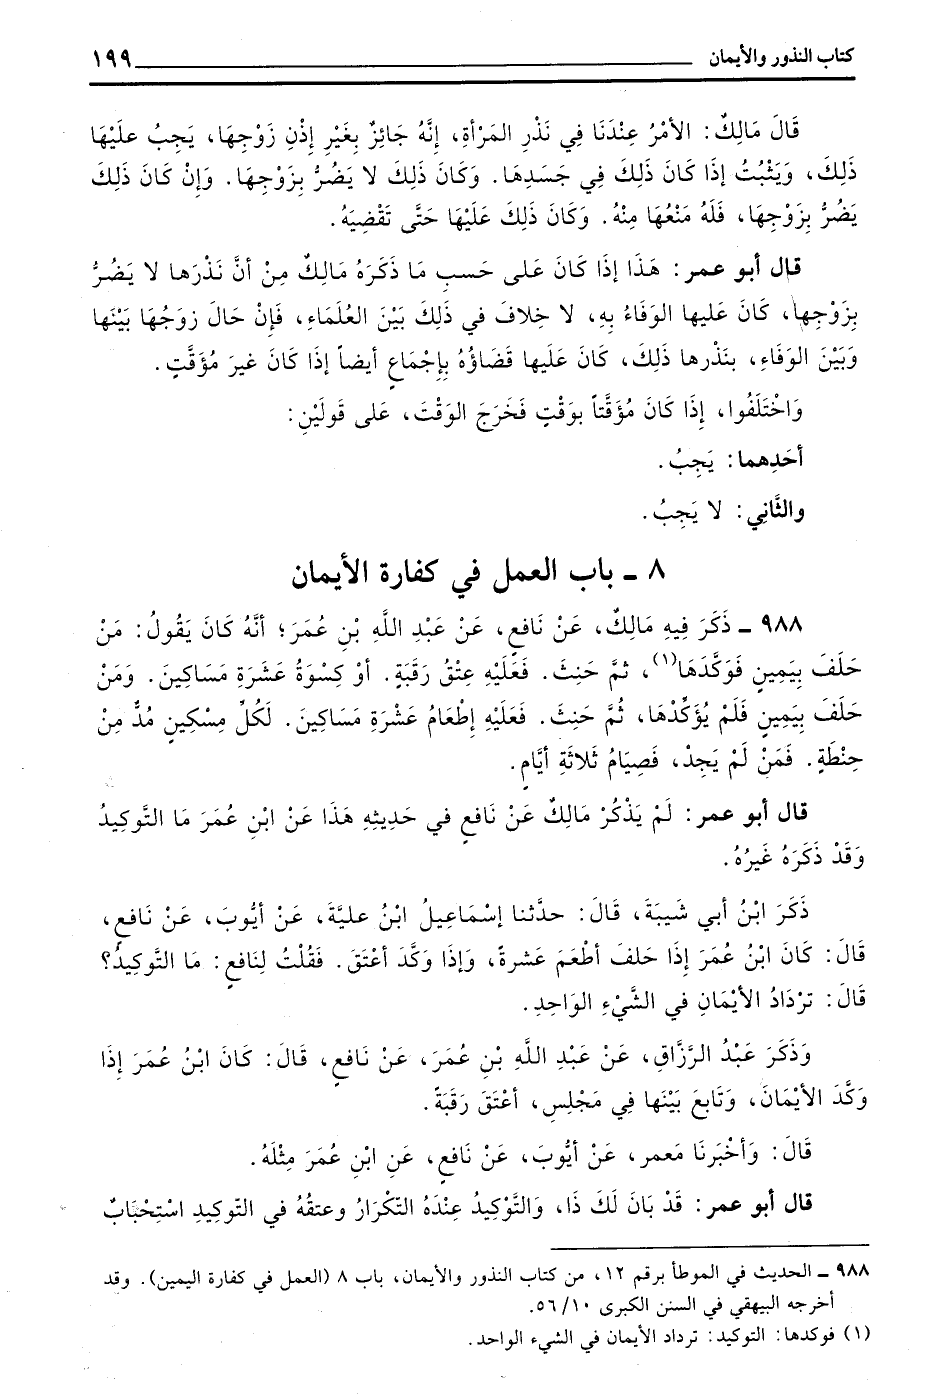 كتاب النذور والأيمان ١٩٩
قَالَ مَالِكٌ: الأمْرُ عِنْدَنَا فِي نَذْرِ المَرْأةِ، إنَّهُ جَائِزٌ بِغَيْرِ إذْنِ زَوْجِهَا، يَجِبُ علَيْهَا
ذَلِكَ، وَيَثْبُتُ إذَا كَانَ ذَلِكَ فِي جَسَدِهَا. وَكَانَ ذَلِكَ لا يَضُرُّ بِزَوْجِهَا. وَإنْ كَانَ ذَلِكَ
يَضُرُّ بِزَوْجِهَا، فَلَهُ مَنْعُهَا مِنْهُ. وَكَانَ ذَلِكَ عَلَيْهَا حَتَّى تَقْضِيَهُ.
قال أبو عمر: هَذَا إذَا كَانَ عَلى حَسبِ مَا ذَكَرَهُ مَالِكٌ مِنْ أنَّ نَذْرَها لا يَضُرُّ
بِزَوْجِها، كَانَ عَليها الوَفَاءُ بِهِ، لا خِلافَ في ذَلِكَ بَيْنَ العُلَمَاءِ، فَإنْ حَالَ زوجُهَا بَيْنَها
وَبَيْنَ الوَفَاءِ، بنَذْرِها ذَلِكَ، كَانَ عَلَيها قَضَاؤُهُ بِإجْمَاعٍ أيضاً إذَا كَانَ غيرَ مُؤَقَّتٍ.
وَاخْتَلَفُوا، إذَا كَانَ مُؤَقَّتاً بوَقْتٍ فَخَرَجَ الوَقْتَ، عَلى قَولَيْنِ:
أحَدِهما: يَجِبُ.
والثَّانِي: لا يَجِبُ.
٨ ـ باب العمل في كفارة الأيمان
٩٨٨ ـ ذَكَرَ فِيهِ مَالِكٌ، عَنْ نَافعٍ، عَنْ عَبْدِ اللَّهِ بْنِ عُمَرَ؛ أنَّهُ كَانَ يَقُولُ: مَنْ
حَلَفَ بِيَمِينٍ فَوَكَّدَهَا(١)، ثمَّ حَنِثَ. فَعَلَيْهِ عِتْقُ رَقَبَةٍ. أوْ كِسْوَةُ عَشَرَةِ مَسَاكِينَ. وَمَنْ
حَلَفَ بِيَمِينٍ فَلَمْ يُؤَكِّدْهَا، ثُمَّ حَنِثَ. فَعَلَيْهِ إطْعَامُ عَشْرَةِ مَسَاكِينَ. لَكُلِّ مِسْكِينٍ مُدٌّ مِنْ
حِنْطَةٍ. فَمَنْ لَمْ يَجِدْ، فَصِيَامُ ثَلاثَةِ أيَّامٍ.
قال أبو عمر: لَمْ يَذْكُرْ مَالِكٌ عَنْ نَافعٍ في حَدِيثِهِ هَذَا عَنْ ابْنِ عُمَرَ مَا التَّوكِيدُ
وَقَدْ ذَكَرَهُ غَيرُهُ.
ذَكَرَ ابْنُ أبي شَيبَةَ، قَالَ: حدَّثنا إسْمَاعِيلُ ابْنُ عليَّةَ، عَنْ أيُّوبَ، عَنْ نَافعٍ،
قَالَ: كَانَ ابْنُ عُمَرَ إذَا حَلفَ أطْعَمَ عَشرةً، وَإذَا وَكَّدَ أعْتَقَ. فَقُلْتُ لِنَافعٍ: مَا التَّوكِيدُ؟
قَالَ: تَرْدَادُ الأيْمَانِ في الشَّيْءِ الوَاحِدِ.
وَذَكَرَ عَبْدُ الرَّزَّاقِ، عَنْ عَبْدِ اللَّهِ بْنِ عُمَرَ، عَنْ نَافعٍ، قَالَ: كَانَ ابْنُ عُمَرَ إذَا
وَكَّدَ الأيْمَانَ، وَتَابعَ بَيْنَها فِي مَجْلِسٍ، أعْتَقَ رَقَبَةً.
قَالَ: وَأخْبَرنَا مَعمر، عَنْ أيُّوبَ، عَنْ نَافعٍ، عَنِ ابْنِ عُمَرَ مِثْلَهُ.
قال أبو عمر: قَدْ بَانَ لَكَ ذَا، وَالتَّوْكِيدُ عِنْدَهُ التّكْرَارُ وعتقُهُ في التوكِيدِ اسْتِحْبَابٌ
٩٨٨ ـ الحديث في الموطأ برقم ١٢، من كتاب النذور والأيمان، باب ٨ (العمل في كفارة اليمين). وقد
أخرجه البيهقي في السنن الكبرى ٥٦/١٠.
(١) فوكدها: التوكيد: ترداد الأيمان في الشيء الواحد.